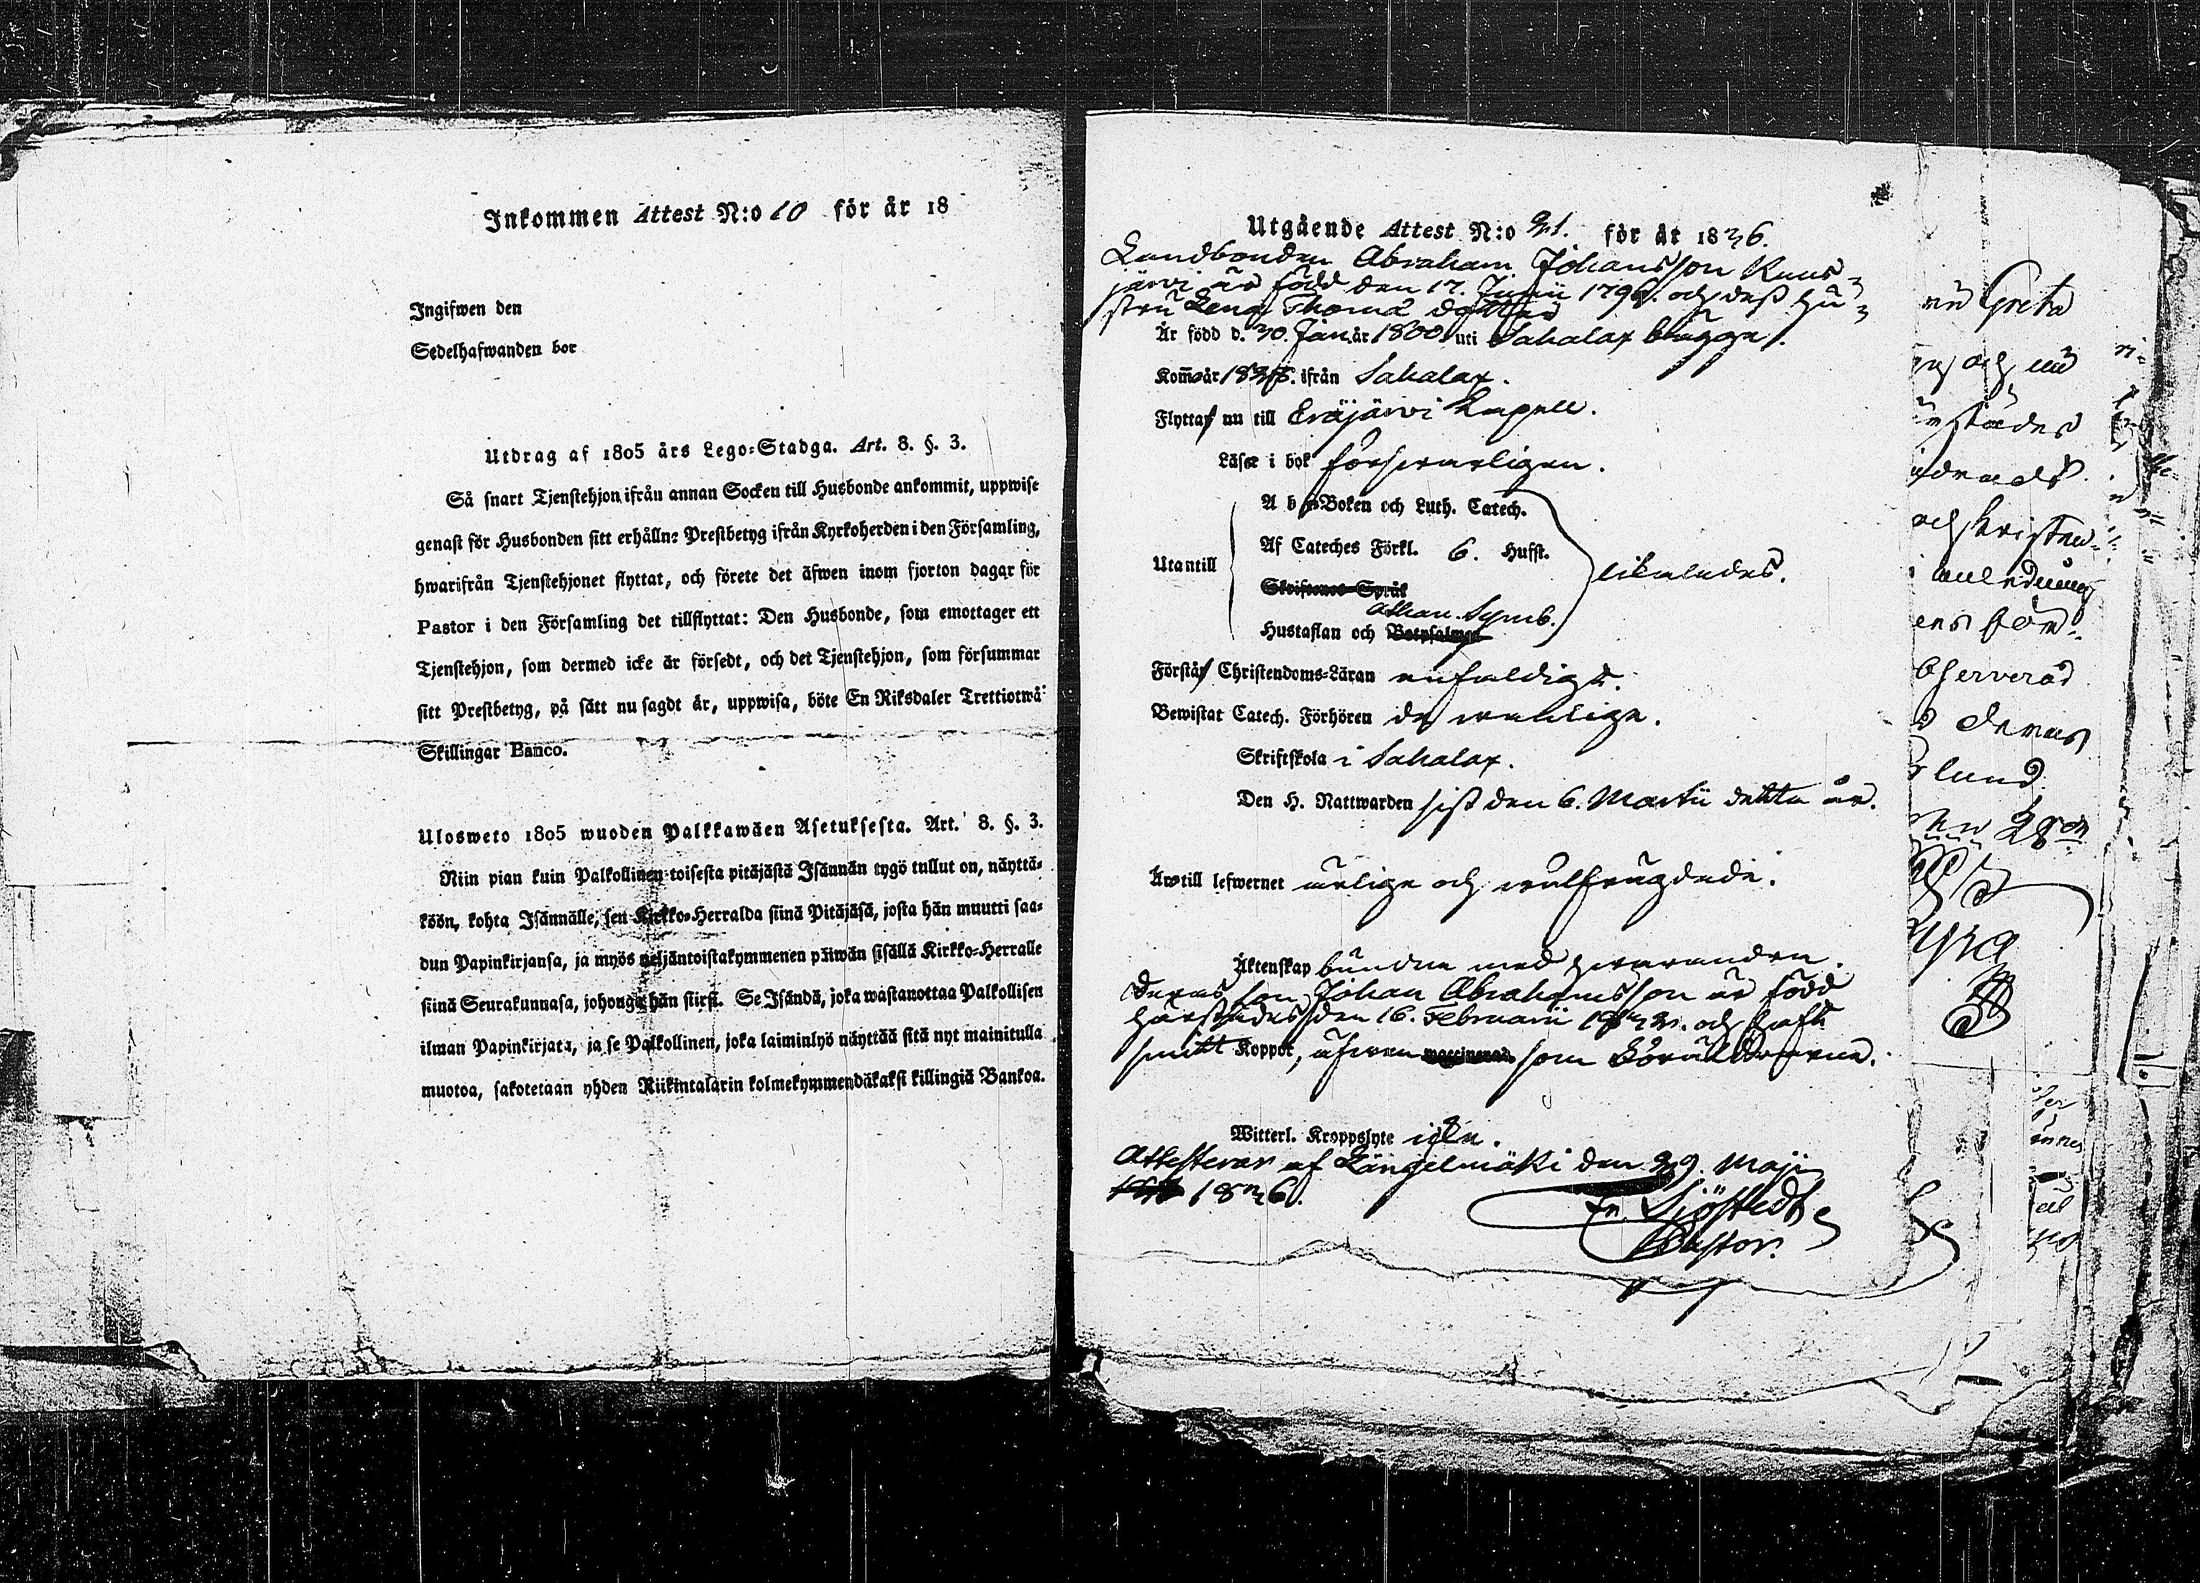 Inkommen Attest N:o 10 för år 18
Ingifwen den
Sedelhafwanden bor
Utdrag af 1805 års Lego-Stadga. Art. 8. §. 3.
Så snart Tjenstehjon ifrån annan Socken till Husbonde ankommit, uppwise
genast för Husbonden sitt erhålln: Prestbetyg ifrån Kyrkoherden i den Församling,
hwarifrån Tjenstehjonet flyttat, och förete det äfwen inom fjorton dagar för
Pastor i den Församling det tillflyttat: Den Husbonde, som emottager ett
Tjenstehjon, som dermed icke är försedt, och det Tjenstehjon, som försummar
sitt Prestbetyg, på sätt nu sagdt är, uppwisa, böte En Riksdaler Trettiotwå
Skillingar Banco.
Ulosweto 1805 wuoden Palkkawäen Asetuksesta. Art. 8. §. 3.
Niin pian kuin Palkollinen toisesta pitäjästä Isännän tygö tullut on, näyttä-
köön, kohta Isännälle, sen Kirkko-Herralda siinä Pitäjäsä, josta hän muutti saa-
dun Papinkirjansa, ja myös neljäntoistakymmenen päiwän sisällä Kirkko-Herralle
siinä Seurakunnasa, johonga hän siirsi. Se Isändä, joka wastanottaa Palkollisen
ilman Papinkirjata, ja se Palkollinen, joka laiminlyö näyttää sitä nyt mainitulla
muotoa, sakotetaan yhden Riikintalarin kolmekymmendäkaksi killingiä Bankoa.
Utgående Attest N:o 21. för år 1826.
Landbonden Abraham Johansson Kuus-
järvi är född den 17. Junii 1796. och dess hu-
stru Lena Thomæ dotter
Är född d. 30. Jan. år 1800. uti Sahalax bägge.
Kom̅o år ifrån Sahalax.
Flytta nu till Eräjärvi Kapell.
Läsa i bok försvarligen.
A b c Boken och Luth. Catech.
Af Cateches Förkl. 6. Hufst.
Utantill likaledes.
Skriftenes Språk
Athan. Symb.
Hustaflan och Botpsalmer
Förstå Christendoms-Läran enfaldigt.
Bewistat Catech. Förhören de wanliga.
Skriftskola i Sahalax.
Den H. Nattwarden sist den 6. Martii detta år.
Äro till lefwernet ärliga och välfrägdade.
Äktenskap bundne med hvarandra.
Deras son Johan Abrahamsson är född
härstädes den 16. Februarii och haft
smitt Koppor, äfwen som Föräldrarne.
Witterl. Kroppslyte icke.
Attesterar af Längelmäki den 29. Maji
1826.
Fr. Sjöstedt
Pastor.
Greta
och
städes
och Kristen-
anledning
observerad
deras
lund